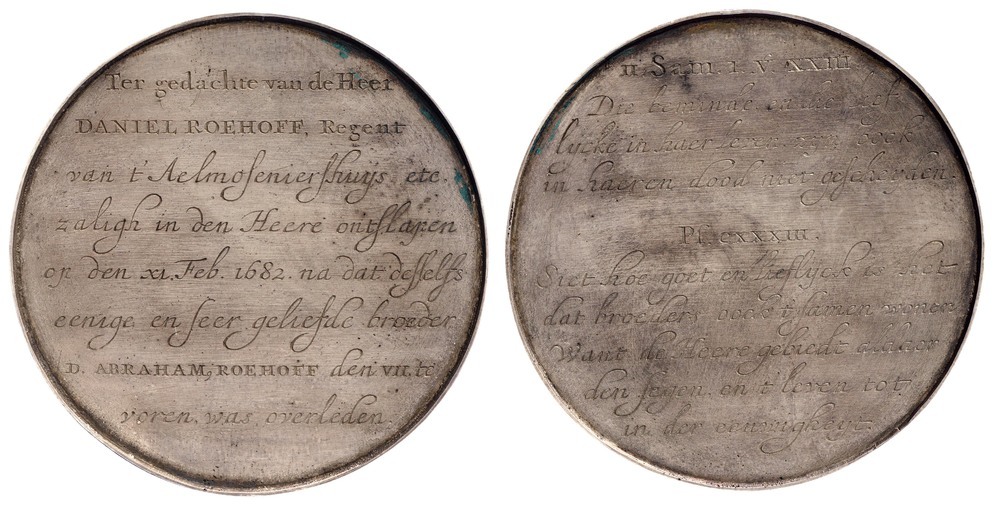 Ter gedachte van de Heer
DANIEL ROEHOFF, Regent
van t' Aelmoſenierſhuÿs etc.
zaligh in den Heere ontſlapen
op den XI. Feb. 1682. na dat deſſelfs
eenige en ſeer geliefde broeder
D. ABRAHAM, ROEHOFF den VII. te
voren, was overleden.
II. Sam. 1. V. XXIII.
Die beminde en die lief-
lycke in haer leven zyn oock
in haeren dood niet geſcheyden.
Pſ. CXXXIII.
Siet hoe goet en lieflyck is het
dat broeders oock t'ſamen wonen
Want de Heere gebiedt aldaer
den ſegen en t' leven tot
in der eeuwigheyt.